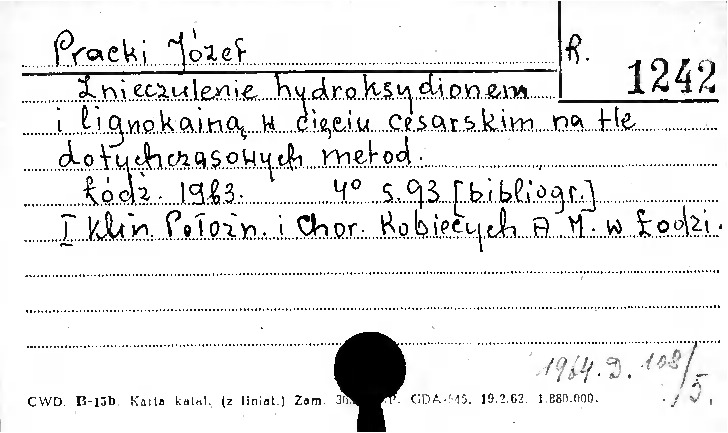 Pracki Józef
R. 1242
Znieczulenie hydroksydionem
i lignokainą w cięciu cesarskim na tle
dotychczasowych metod.
Łódź. 1963. 4° s. 93 [bibliogr.]
I Klin. Położn. i Chor. Kobiecych A M. w Łodzi.
1964.D.108/5.
CWD. B-15b. Karta katal. (z liniat.) Zam. GDA-545. 19.2.62. 1.880.000.